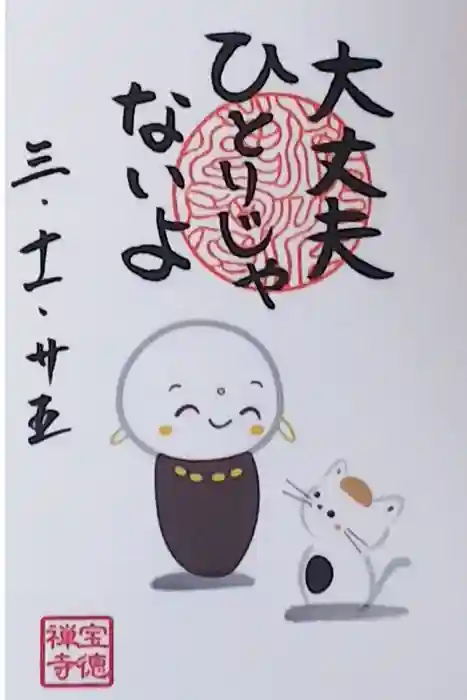 大丈夫
ひとりじゃ
ないよ
三・十一・廿五
宝徳
禅寺